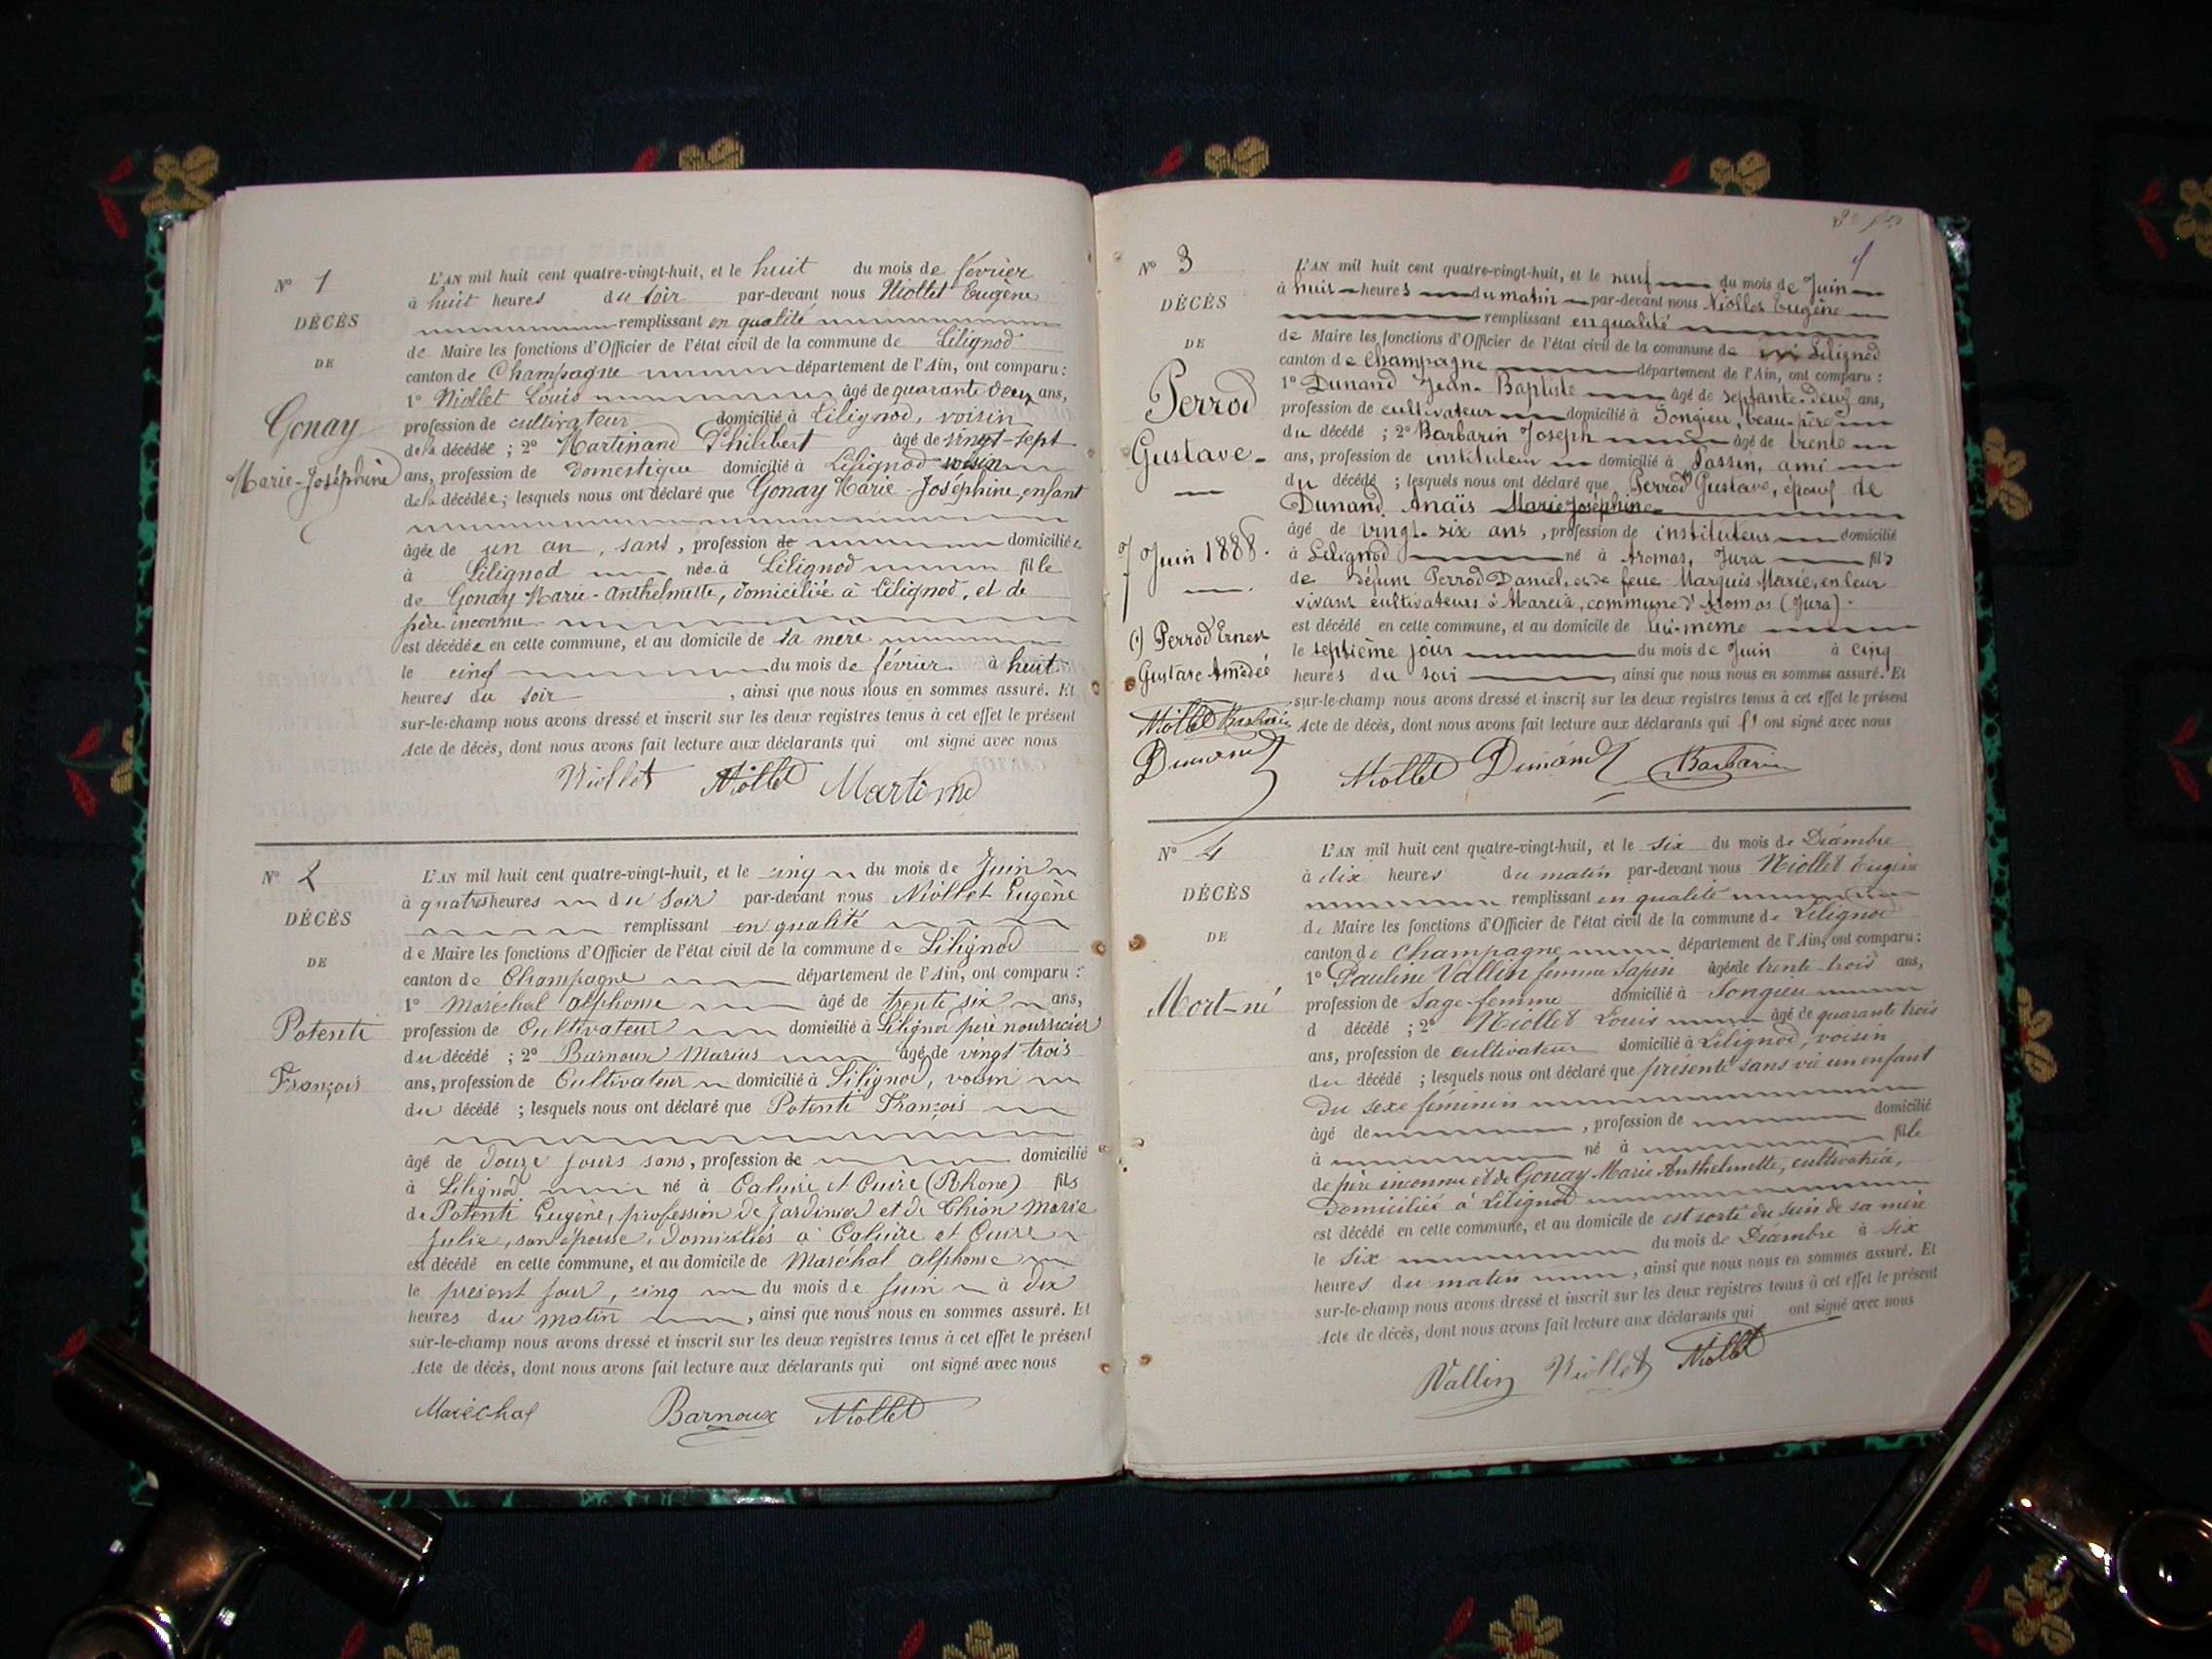 N° 1
DÉCÈS
DE
Gonay
Marie-Joséphine
L'AN mil huit cent quatre-vingt-huit, et le huit du mois de février
à huit heures du soir par-devant nous Niollet Eugène
remplissant en qualité
de Maire les fonctions d'Officier de l'état civil de la commune de Lilignod
canton de Champagne département de l'Ain, ont comparu :
1° Niollet Louis âgé de quarante deux ans,
profession de cultivateur domicilié à Lilignod, voisin
de la décédée ; 2° Martinand Philibert âgé de vingt-sept
ans, profession de domestique domicilié à Lilignod voisin
de la décédée ; lesquels nous ont déclaré que Gonay Marie-Joséphine, enfant
âgée de un an, sans, profession de domiciliée
à Lilignod née à Lilignod fille
de Gonay Marie-Anthelmette, domiciliée à Lilignod, et de
père inconnu
est décédée en cette commune, et au domicile de sa mère
le cinq du mois de février à huit
heures du soir, ainsi que nous nous en sommes assuré. Et
sur-le-champ nous avons dressé et inscrit sur les deux registres tenus à cet effet le présent
Acte de décès, dont nous avons fait lecture aux déclarants qui ont signé avec nous
Niollet Niollet Martinand
N° 2
DÉCÈS
DE
Potenti
François
L'AN mil huit cent quatre-vingt-huit, et le cinq du mois de Juin
à quatre heures du soir par-devant nous Niollet Eugène
remplissant en qualité
de Maire les fonctions d'Officier de l'état civil de la commune de Lilignod
canton de Champagne département de l'Ain, ont comparu :
1° Maréchal Alphonse âgé de trente six ans,
profession de Cultivateur domicilié à Lilignod père nourricier
du décédé ; 2° Barnoux Marius âgé de vingt trois
ans, profession de Cultivateur domicilié à Lilignod, voisin
du décédé ; lesquels nous ont déclaré que Potenti François
âgé de douze jours sans, profession de domicilié
à Lilignod né à Caluire et Cuire (Rhone) fils
de Potenti Eugène, profession de Jardinier et de Chion Marie
Julie, son épouse, domiciliés à Caluire et Cuire
est décédé en cette commune, et au domicile de Maréchal Alphonse
le présent jour, cinq du mois de Juin à dix
heures du matin, ainsi que nous nous en sommes assuré. Et
sur-le-champ nous avons dressé et inscrit sur les deux registres tenus à cet effet le présent
Acte de décès, dont nous avons fait lecture aux déclarants qui ont signé avec nous
Maréchal Barnoux Niollet
N° 3
DÉCÈS
DE
Perrod
Gustave
7 Juin 1888.
(1) Perrod Ernest
Gustave Amédée
Niollet Barbarin
Dunand
L'AN mil huit cent quatre-vingt-huit, et le neuf du mois de Juin
à huit heures du matin par-devant nous Niollet Eugène
remplissant en qualité
de Maire les fonctions d'Officier de l'état civil de la commune de Lilignod
canton de Champagne département de l'Ain, ont comparu :
1° Dunand Jean-Baptiste âgé de septante-deux ans,
profession de cultivateur domicilié à Songieu, beau-père
du décédé ; 2° Barbarin Joseph âgé de trente
ans, profession de instituteur domicilié à Passin, ami
du décédé ; lesquels nous ont déclaré que Perrod Gustave, époux de
Dunand Anaïs Marie Joséphine
âgé de vingt-six ans, profession de instituteur domicilié
à Lilignod né à Aromas, Jura fils
de défunt Perrod Daniel, et de feue Marquis Marie, en leur
vivant cultivateurs à Marcia, commune d'Aromas (Jura).
est décédé en cette commune, et au domicile de lui-même
le septième jour du mois de Juin à cinq
heures du soir, ainsi que nous nous en sommes assuré. Et
sur-le-champ nous avons dressé et inscrit sur les deux registres tenus à cet effet le présent
Acte de décès, dont nous avons fait lecture aux déclarants qui (1) ont signé avec nous
Niollet Dunand Barbarin
N° 4
DÉCÈS
DE
Mort-né
L'AN mil huit cent quatre-vingt-huit, et le six du mois de Décembre
à dix heures du matin par-devant nous Niollet Eugène
remplissant en qualité
de Maire les fonctions d'Officier de l'état civil de la commune de Lilignod
canton de Champagne département de l'Ain, ont comparu :
1° Pauline Vallin femme Sapin âgée de trente-trois ans,
profession de Sage-femme domicilié à Songieu
d décédé ; 2° Niollet Louis âgé de quarante trois
ans, profession de cultivateur domicilié à Lilignod, voisin
du décédé ; lesquels nous ont déclaré que présenté sans vie un enfant
du sexe féminin
âgé de, profession de domicilié
à né à fille
de père inconnu et de Gonay Marie Anthelmette, cultivatrice,
domiciliée à Lilignod
est décédé en cette commune, et au domicile de est sorti du sein de sa mère
le six du mois de Décembre à six
heures du matin, ainsi que nous nous en sommes assuré. Et
sur-le-champ nous avons dressé et inscrit sur les deux registres tenus à cet effet le présent
Acte de décès, dont nous avons fait lecture aux déclarants qui ont signé avec nous
Vallin Niollet Niollet